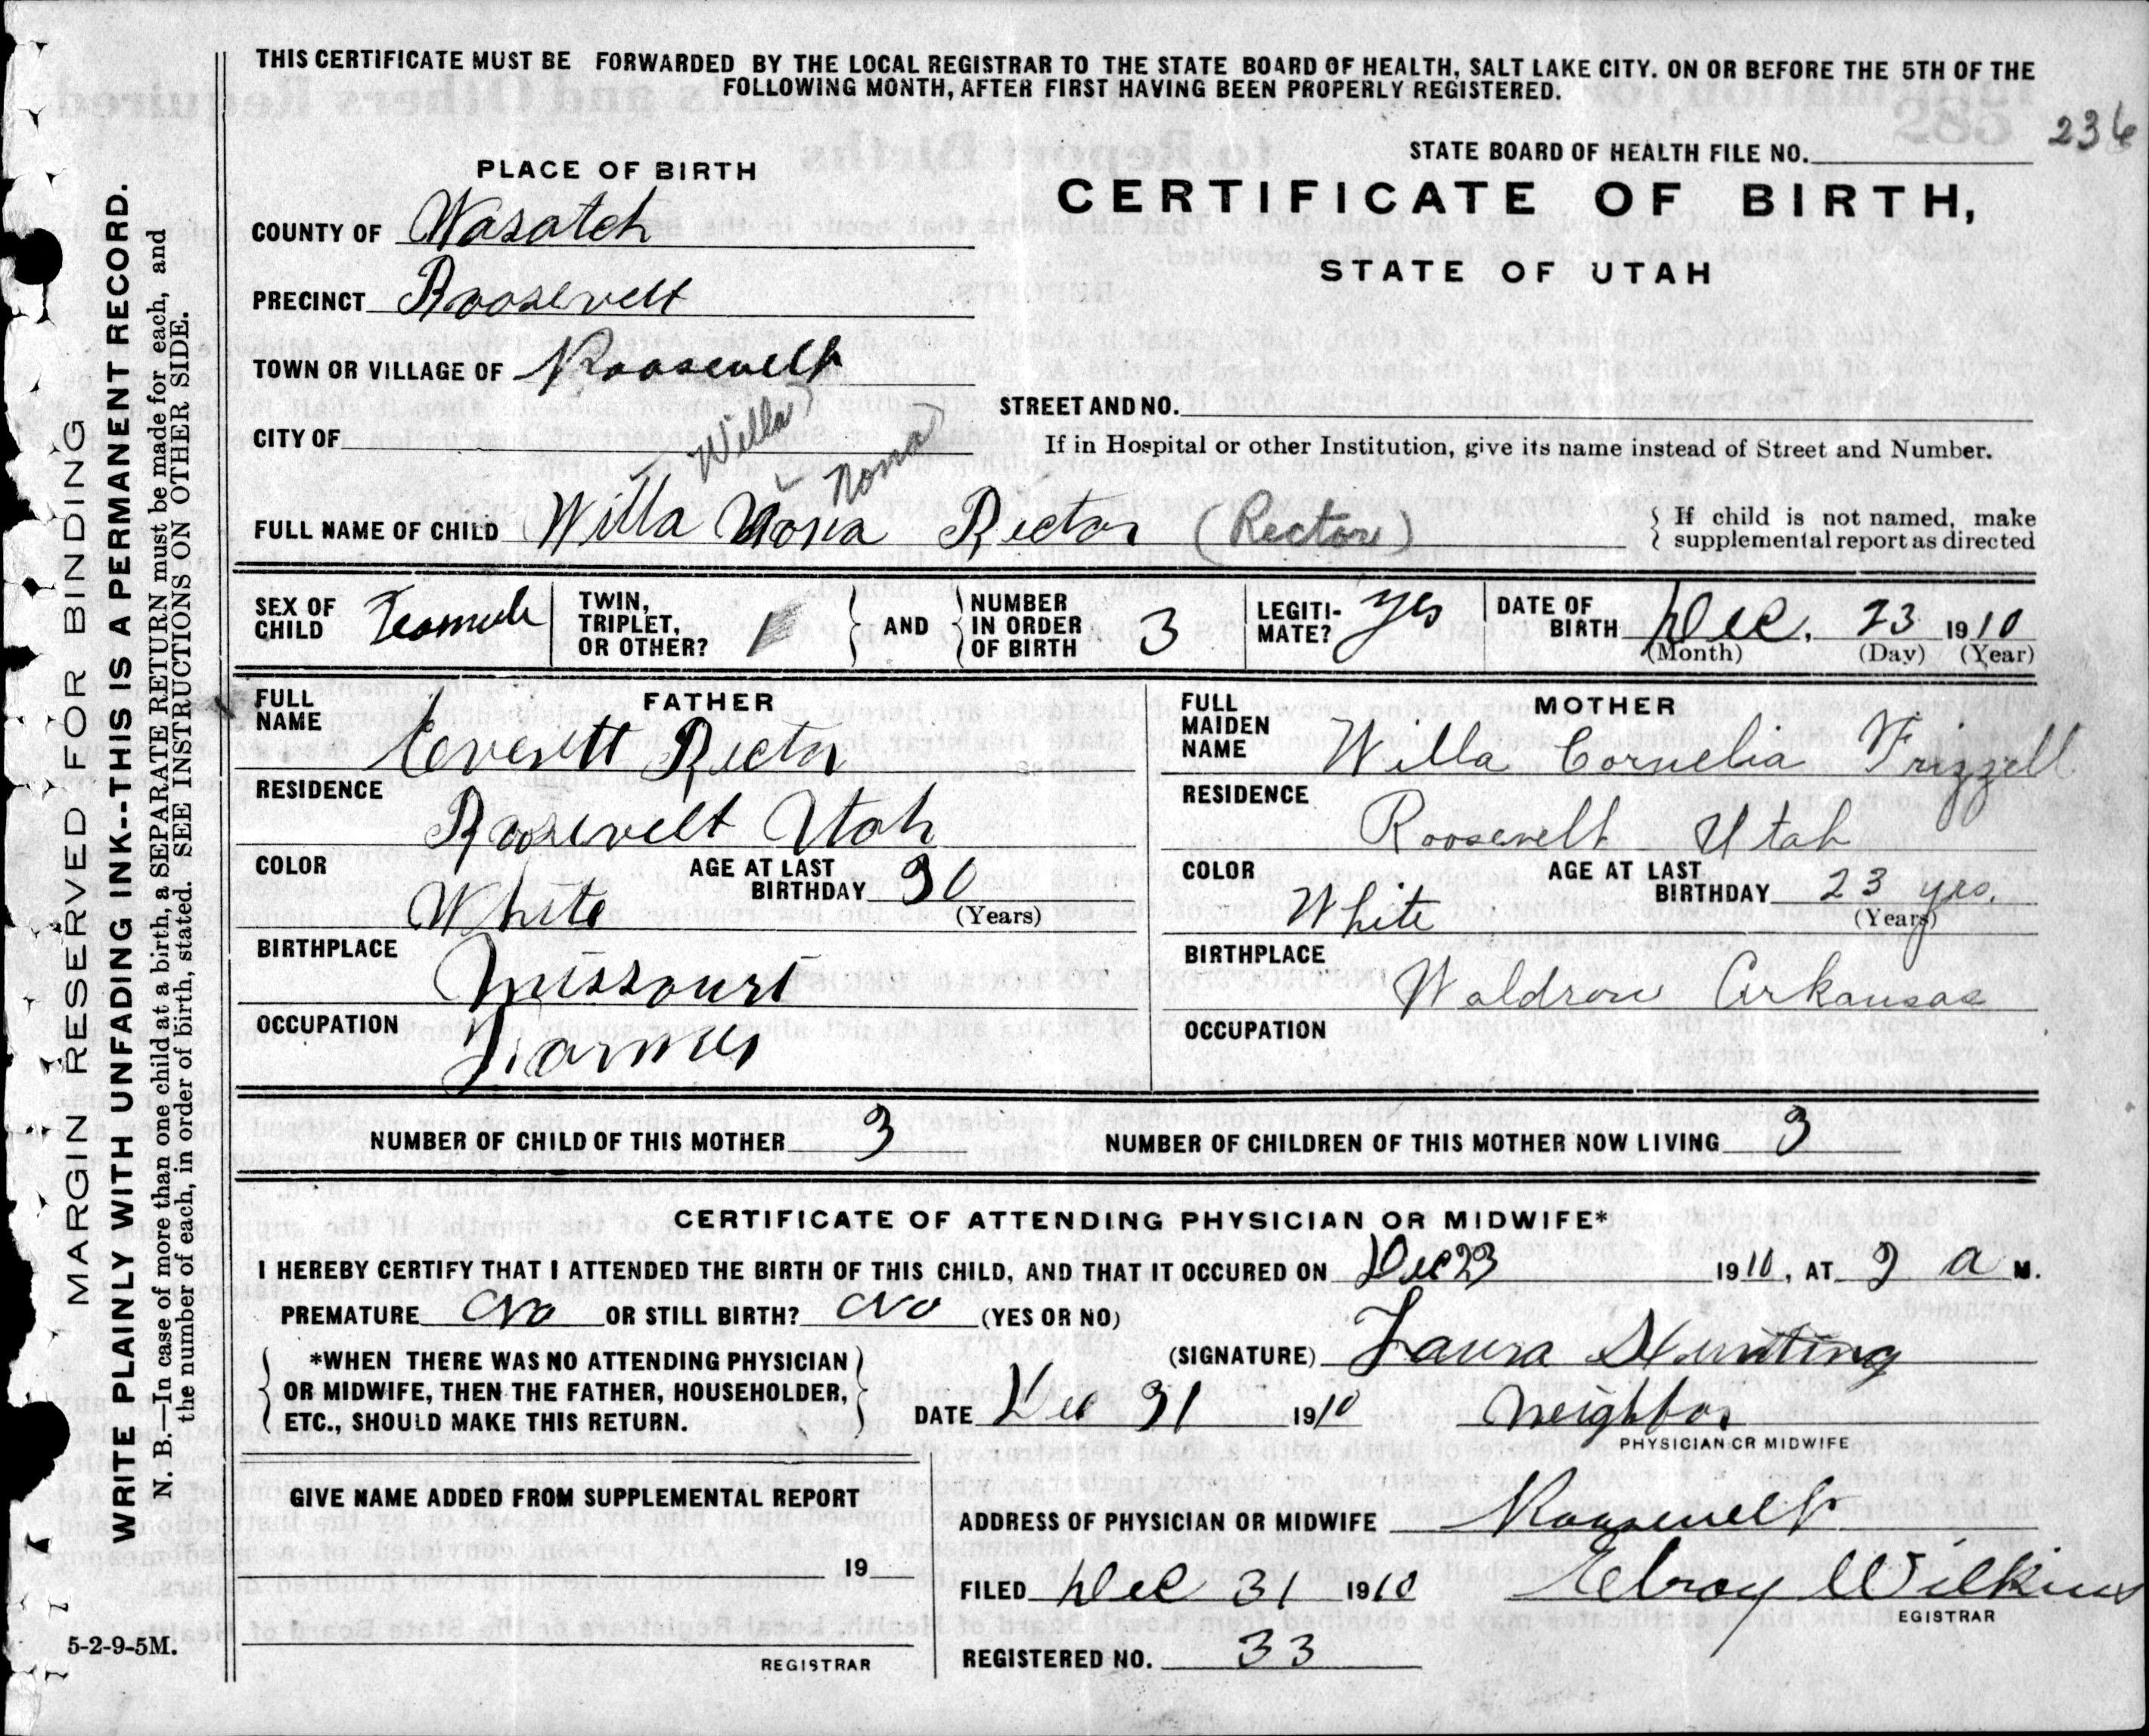 THIS CERTIFICATE MUST BE FORWARDED BY THE LOCAL REGISTRAR TO THE STATE BOARD OF HEALTH, SALT LAKE CITY. ON OR BEFORE THE 5TH OF THE
FOLLOWING MONTH, AFTER FIRST HAVING BEEN PROPERLY REGISTERED.
236
STATE BOARD OF HEALTH FILE NO.
PLACE OF BIRTH
CERTIFICATE OF BIRTH,
STATE OF UTAH
COUNTY OF Wasatch
PRECINCT Roosevelt
TOWN OR VILLAGE OF Roosevelt
STREET AND NO.
CITY OF
If in Hospital or other Institution, give its name instead of Street and Number.
Willa
Nona
FULL NAME OF CHILD Willa Nona Rector (Rector)
If child is not named, make
supplemental report as directed
SEX OF
CHILD
TWIN,
TRIPLET,
OR OTHER? 1
AND
NUMBER
IN ORDER
OF BIRTH 3
LEGITI-
MATE? yes
DATE OF
BIRTH Dec. 23 1910
(Month) (Day) (Year)
FATHER
FULL
NAME Everett Rector
RESIDENCE
Roosevelt Utah
COLOR
White
AGE AT LAST
BIRTHDAY 30
(Years)
BIRTHPLACE
Missouri
OCCUPATION
Farmer
MOTHER
FULL
MAIDEN
NAME Willa Cornelia Frizzell
RESIDENCE
Roosevelt Utah
COLOR
White
AGE AT LAST
BIRTHDAY 23 yrs.
(Years)
BIRTHPLACE
Waldron Arkansas
OCCUPATION
NUMBER OF CHILD OF THIS MOTHER 3 NUMBER OF CHILDREN OF THIS MOTHER NOW LIVING 3
CERTIFICATE OF ATTENDING PHYSICIAN OR MIDWIFE*
I HEREBY CERTIFY THAT I ATTENDED THE BIRTH OF THIS CHILD, AND THAT IT OCCURED ON Dec 23 1910, AT 2 a M.
PREMATURE No OR STILL BIRTH? No (YES OR NO)
*WHEN THERE WAS NO ATTENDING PHYSICIAN
OR MIDWIFE, THEN THE FATHER, HOUSEHOLDER,
ETC., SHOULD MAKE THIS RETURN.
(SIGNATURE) Laura Hunting
DATE Dec 31 1910 Neighbor
PHYSICIAN OR MIDWIFE
GIVE NAME ADDED FROM SUPPLEMENTAL REPORT
19
REGISTRAR
ADDRESS OF PHYSICIAN OR MIDWIFE Roosevelt
FILED Dec 31 1910 Elroy Wilkins
EGISTRAR
REGISTERED NO. 33
5-2-9-5M.
MARGIN RESERVED FOR BINDING
WRITE PLAINLY WITH UNFADING INK--THIS IS A PERMANENT RECORD.
N. B.—In case of more than one child at a birth, a SEPARATE RETURN must be made for each, and
the number of each, in order of birth, stated. SEE INSTRUCTIONS ON OTHER SIDE.